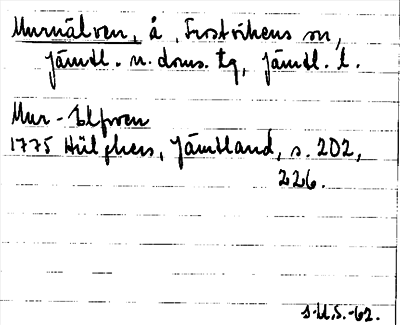 Murnälven, å, Frostvikens sn,
Jämtl. n. doms. tg, Jämtl. l.
Mur-Elfwen
1775 Hülphers, Jämtland, s. 202,
226.
S.U.S.-62.